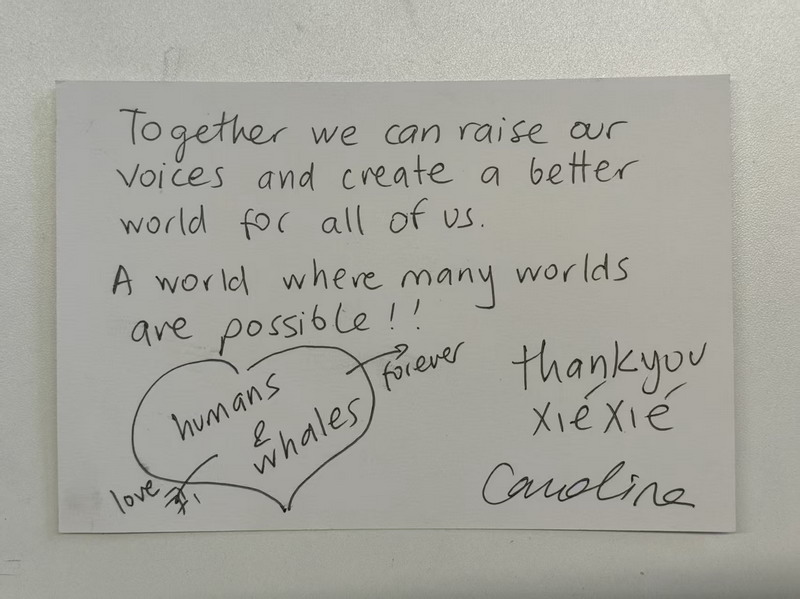 Together we can raise our
voices and create a better
world for all of us.
A world where many worlds
are possible!!
humans
&
whales
forever
love
thankyou
xiéxié
Caroline